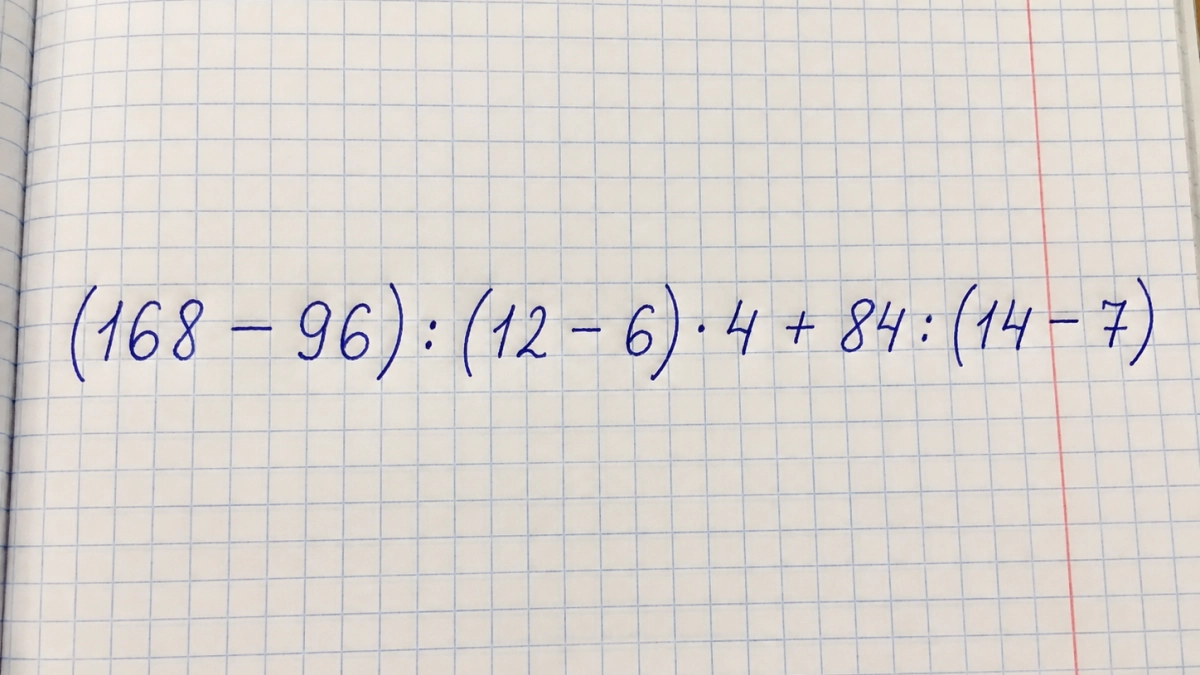 (168 − 96) : (12 − 6) · 4 + 84 : (14 − 7)